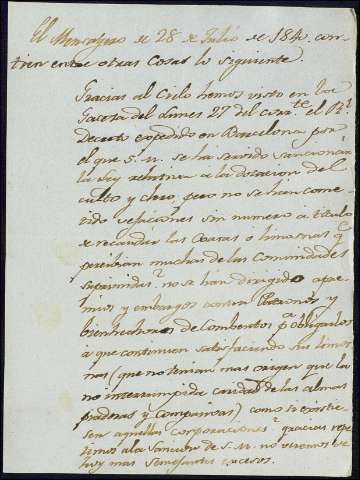 El Mensagero de 28 de Julio de 1840. con-
tien entre otras Cosas lo siguiente.
Gracias al Cielo hemos visto en la
Gaceta del Lunes 27 del corr.te el R.l
Decreto expedido en Barcelona por
el que S. M. se ha servido sancionar
la Ley relativa a la dotacion del
culto y clero, pero no se han come-
tido vejaciones sin numero a titulo
de recaudar las
percibian muchas de las Comunidades
suprimidas? no se han dirigido apre-
mios y embargos contra Patronos y
bienhechores de Combentos p.a obligarlos
a que continuen satisfaciendo sus limos-
nas (que no tenian mas origen que la
no interrumpida caridad de las almas
piadosas y Compasivas) como si existie-
sen aquellas corporaciones? gracias repe-
timos a la Sancion de S. M. no veremos de
hoy mas semejantes excesos.